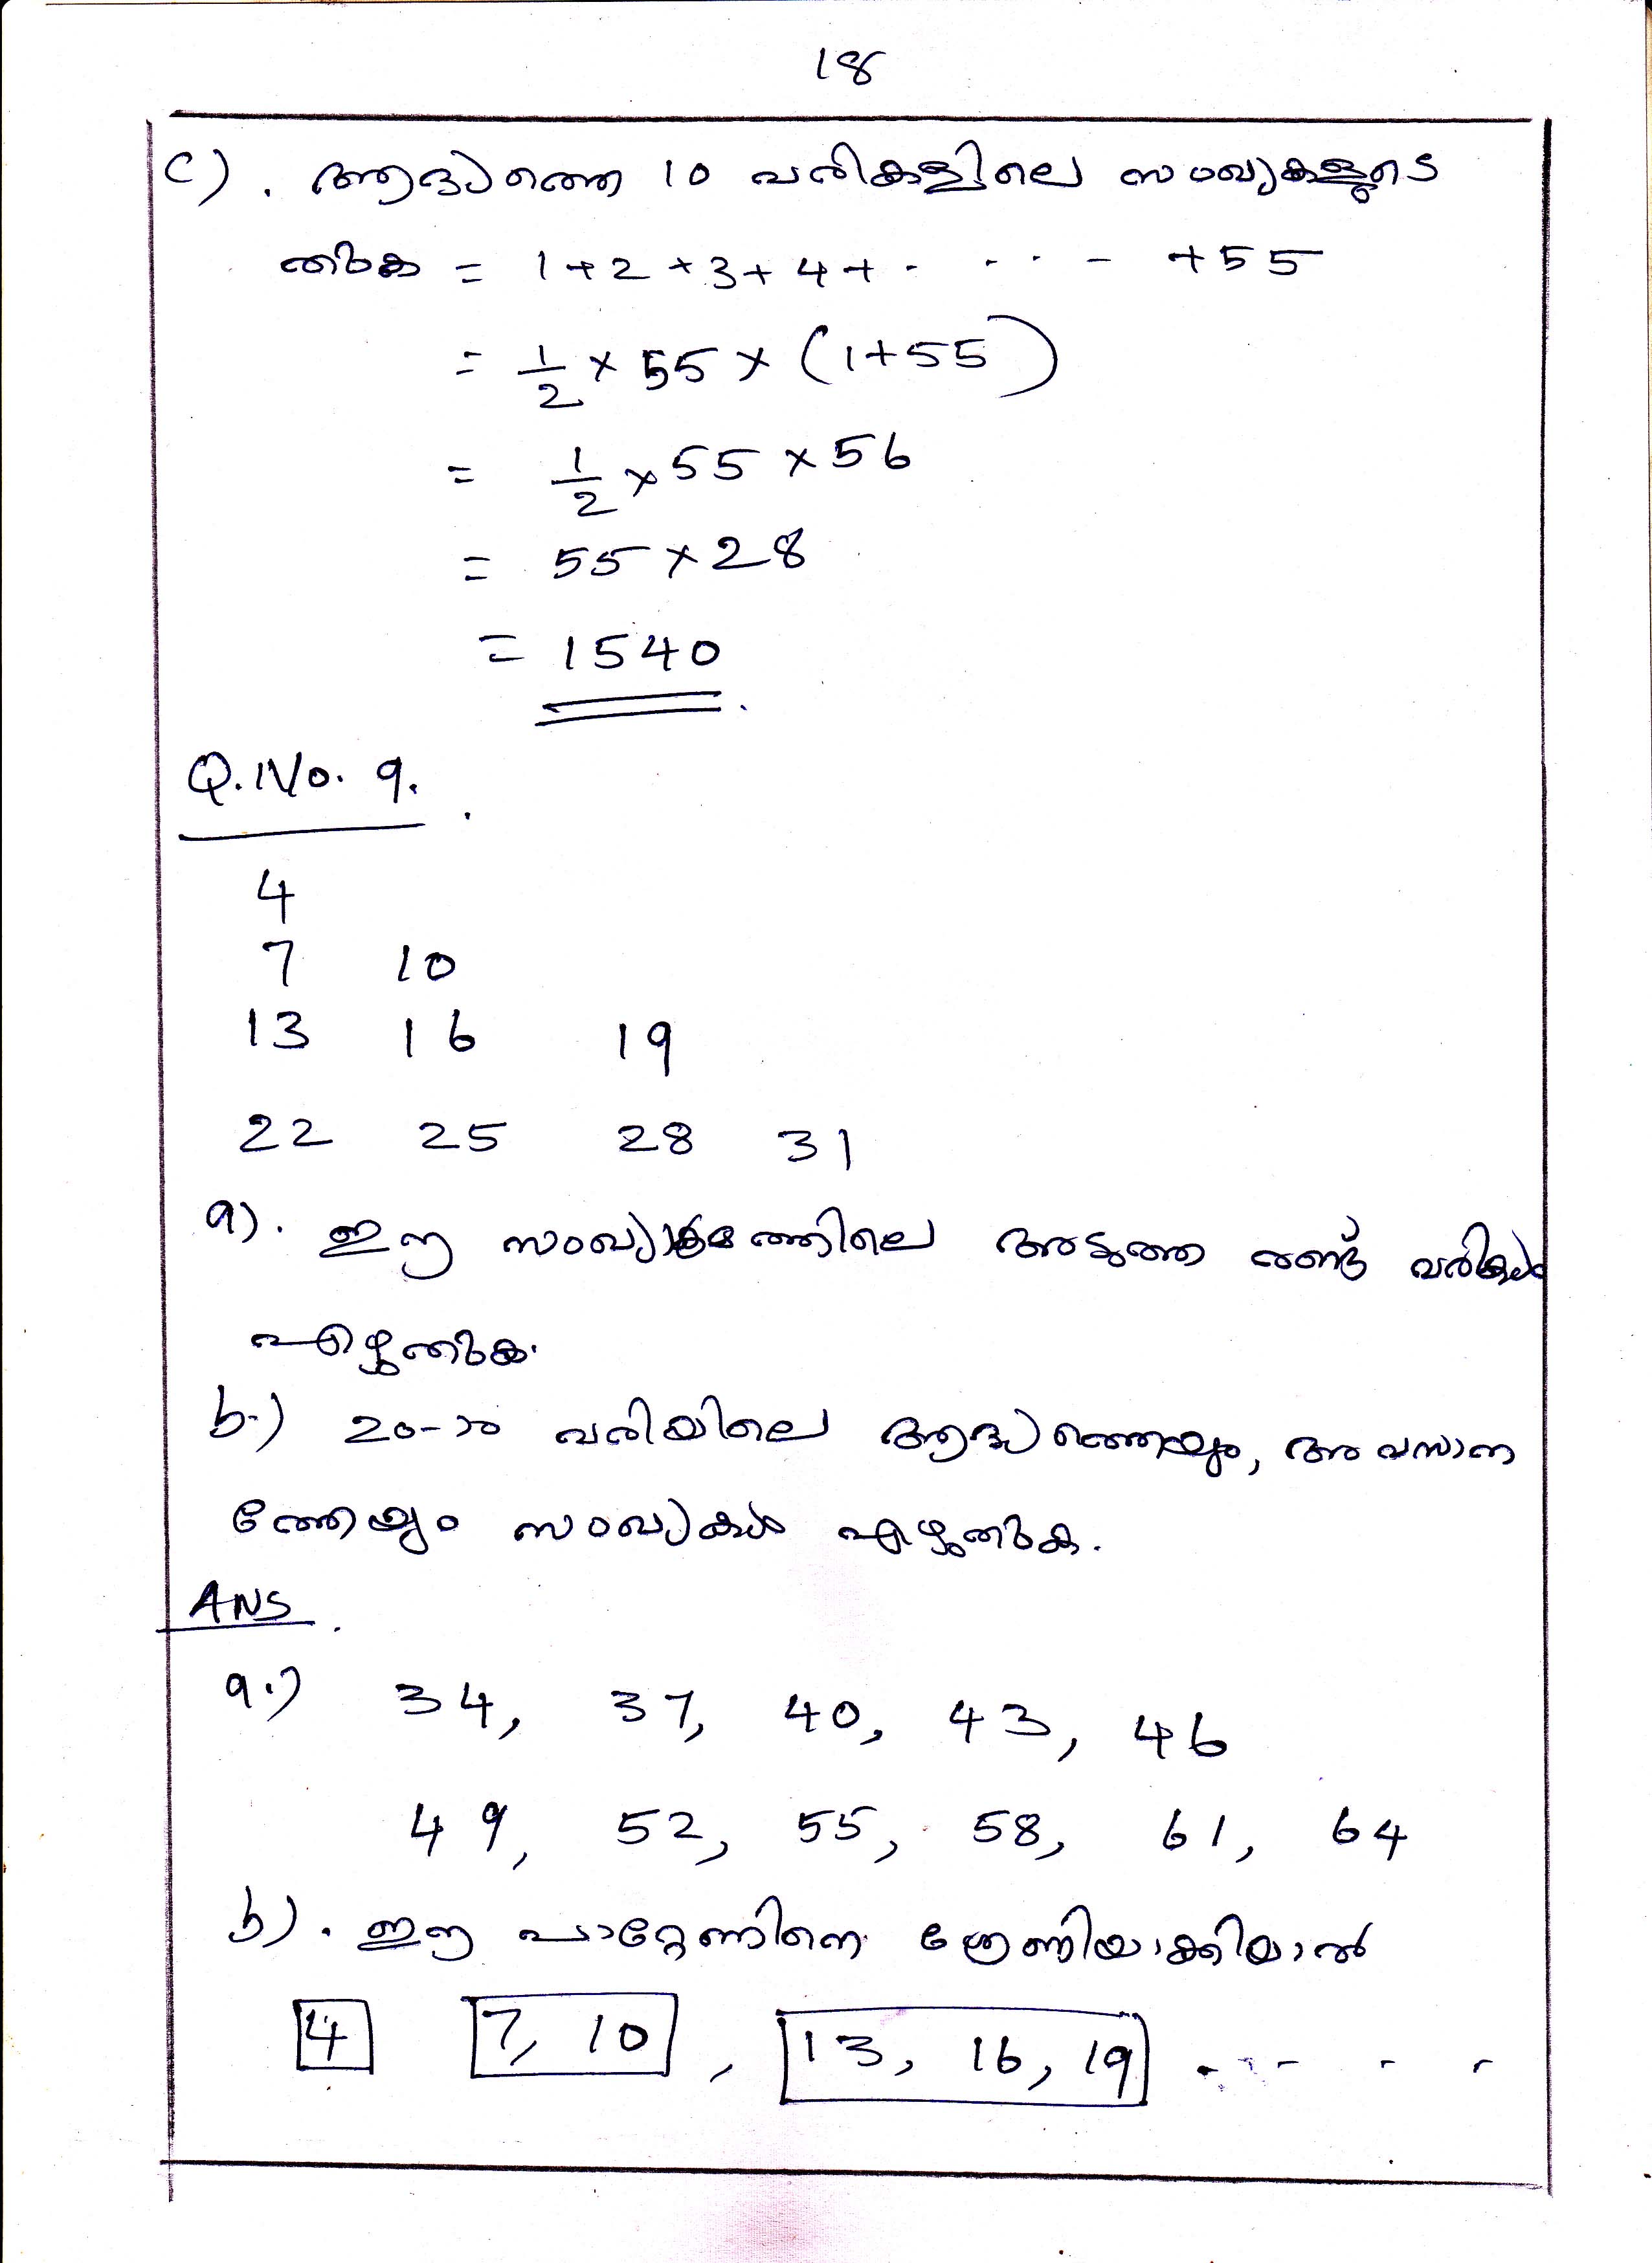 18
c). ആദ്യത്തെ 10 വരികളിലെ സംഖ്യകളുടെ
തുക = 1+2+3+4+- - - - - +55
= 1/2 × 55 × (1+55)
= 1/2 × 55 × 56
= 55 × 28
= 1540
Q.No. 9.
4
7 10
13 16 19
22 25 28 31
a). ഈ സംഖ്യാക്രമത്തിലെ അടുത്ത രണ്ട് വരികൾ
എഴുതുക.
b.) 20-ാം വരിയിലെ ആദ്യത്തെയും, അവസാന
ത്തേയും സംഖ്യകൾ എഴുതുക.
ANS
a.) 34, 37, 40, 43, 46
49, 52, 55, 58, 61, 64
b). ഈ പാറ്റേണിനെ ശ്രേണിയാക്കിയാൽ
4 7, 10 , 13, 16, 19 - - - - -